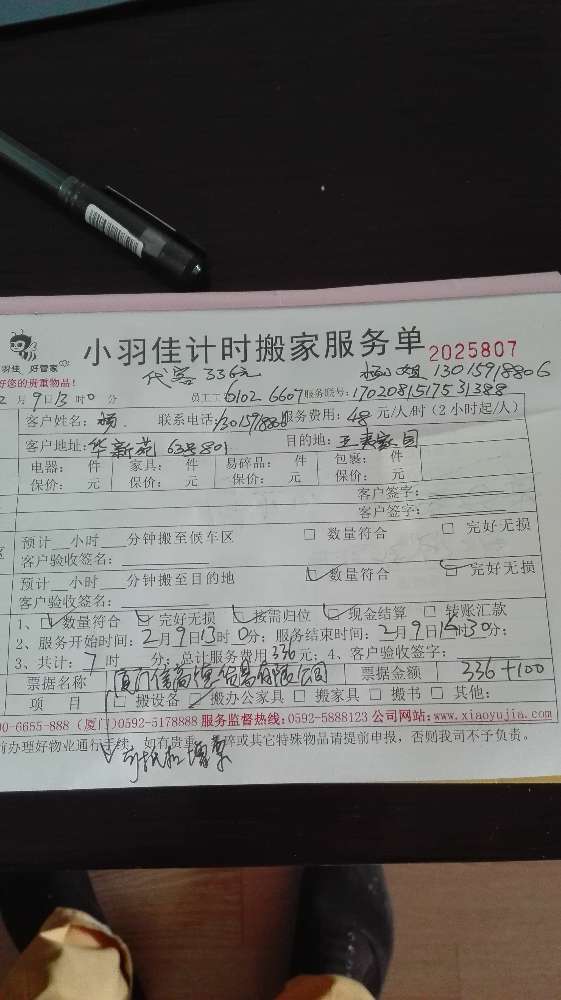 小羽佳计时搬家服务单 2025807
羽佳 好管家
好您的贵重物品!
代客 336元 杨小姐 13015918806
2月9日13时0分 员工工 61026607 服务联号: 17020815175 31388
客户姓名: 杨 联系电话: 13015918806 服务费用: 48元/人/时 (2小时起/人)
客户地址: 华新苑 63号801 目的地:
电器: 件 家具: 件 易碎品: 件 包裹: 件
保价: 元 保价: 元 保价: 元 保价: 元
客户签字:
客户签字:
预计 小时 分钟搬至候车区 □ 数量符合 □ 完好无损
客户验收签名:
预计 小时 分钟搬至目的地 数量符合 完好无损
客户验收签名:
1、 数量符合 完好无损 按需归位 现金结算 □ 转账汇款
2、服务开始时间: 2月9日13时0分; 服务结束时间: 2月9日 时30分;
3、共计: 7时 分; 总计服务费用336元; 4、客户签收签字:
票据名称 厦门 贸易有限公司 票据金额 336+100
项 目 □ 搬设备 搬办公家具 □ 搬家具 □ 搬书 □ 其他:
00-6655-888 (厦门)0592-5178888 服务监督热线:0592-5888123 公司网站:www.xiaoyujia.com
前办理好物业通行手续,如有贵重、 碎或其它特殊物品请提前申报,否则我司不予负责。
可抵扣增票